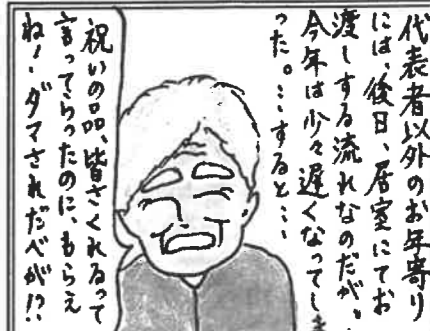 代表者以外のお年寄り
には、後日、居室にてお
渡しする流れなのだが、
今年は少々遅くなってしま
った。…すると…
祝いの品、皆さくれるって
言ってらったのに、もらえ
ね!ダマされだべが!?